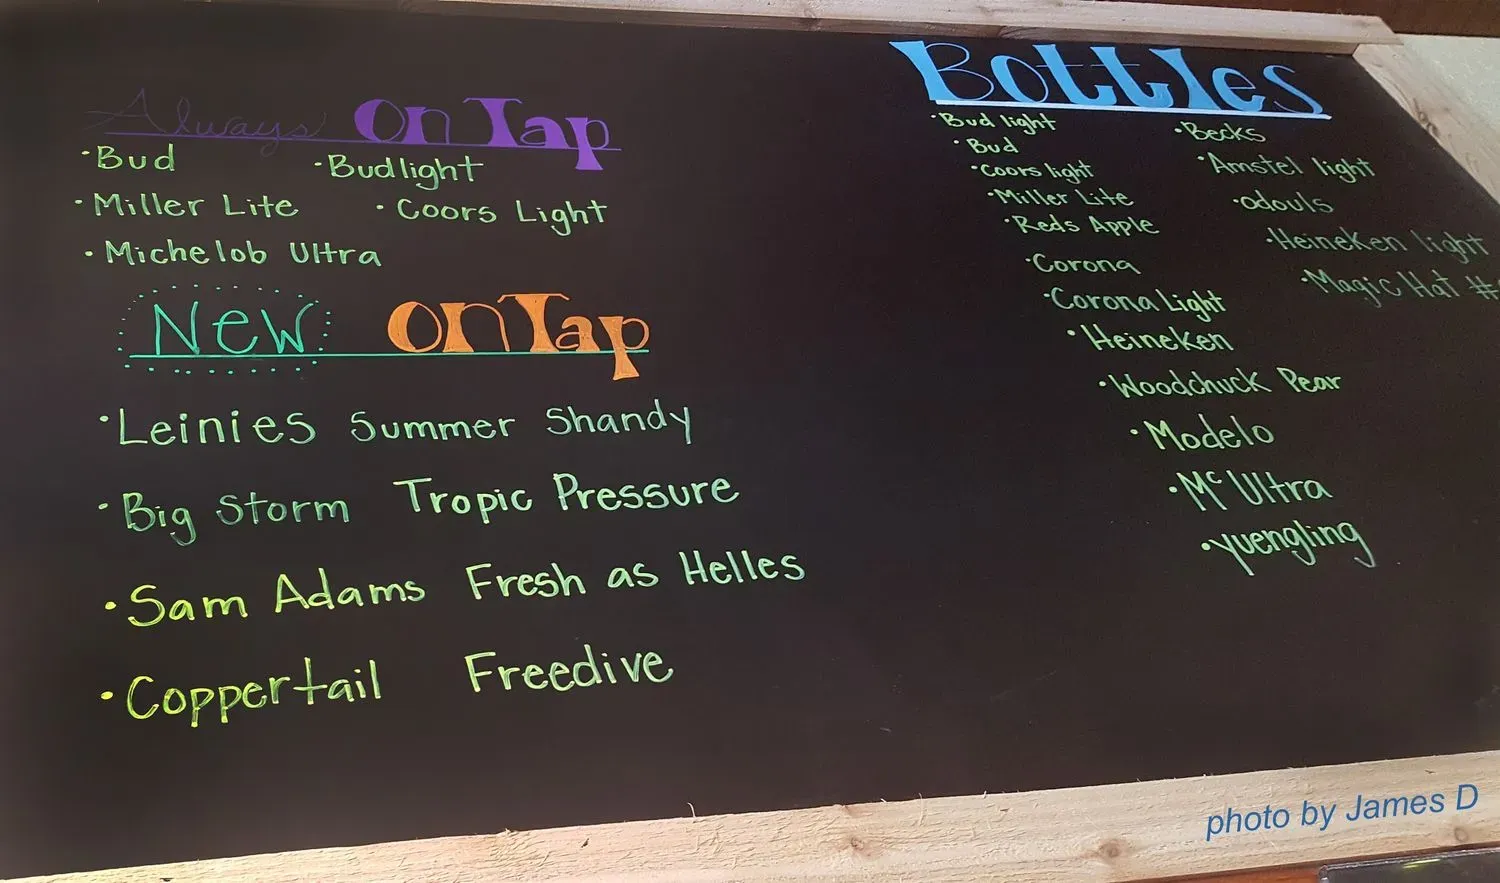 Always On Tap
·Bud ·Bud light
·Miller Lite ·Coors Light
·Michelob Ultra
New On Tap
·Leinies Summer Shandy
·Big Storm Tropic Pressure
·Sam Adams Fresh as Helles
·Coppertail Freedive
Bottles
·Bud light
·Bud
·Coors light
·Miller Lite
·Reds Apple
·Corona
·Corona Light
·Heineken
·Woodchuck Pear
·Modelo
·Mc Ultra
·Yuengling
·Becks
·Amstel light
·odouls
·Heineken light
·Magic Hat #
photo by James D